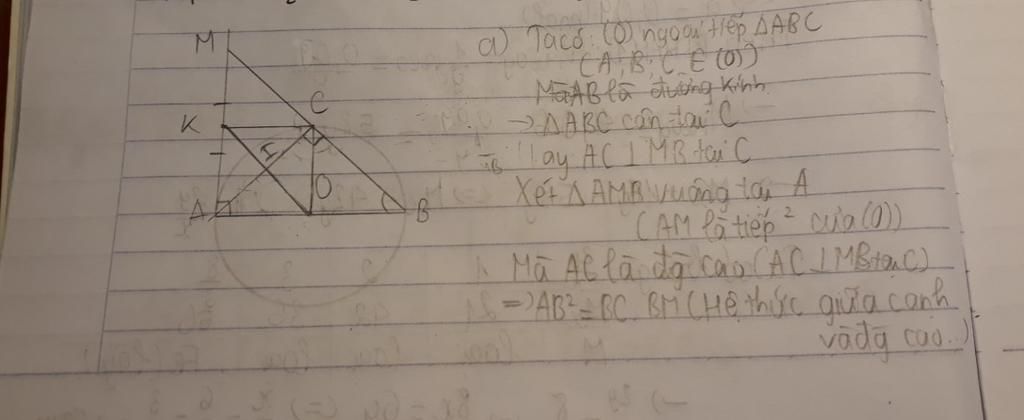 a) Ta có: (O) ngoại tiếp ΔABC
(A; B; C ∈ (O))
Mà AB là đường kính
→ ΔABC cân tại C
hay AC ⊥ MB tại C
Xét ΔAMB vuông tại A
(AM là tiếp² của (O))
Mà AC là đg cao (AC ⊥ MB tại C)
=> AB² = BC. BM (Hệ thức giữa cạnh
và đg cao..)
M
K
C
I
O
A
B